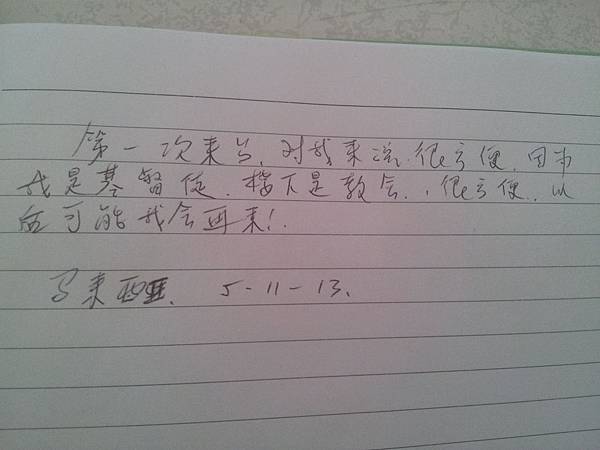 第一次来台,对我来说.很方便,因为
我是基督徒.楼下是教会.,很方便.,以
后可能我会再来!.
马来西亚. 5-11-13.